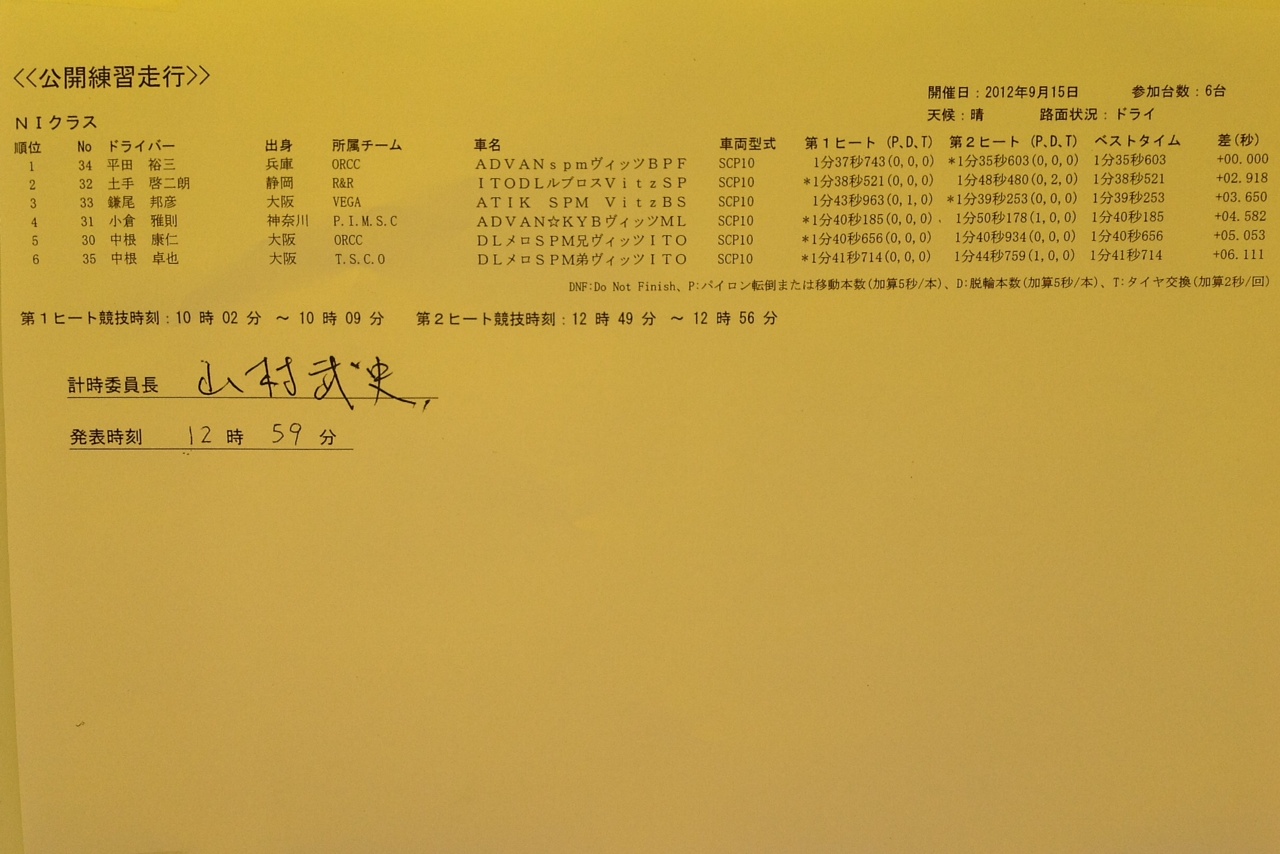 <<公開練習走行>>
開催日：2012年9月15日　参加台数：6台
天候：晴　路面状況：ドライ
ＮＩクラス
順位　No　ドライバー　出身　所属チーム　車名　車両型式　第１ヒート (P,D,T)　第２ヒート (P,D,T)　ベストタイム　差(秒)
1　34　平田　裕三　兵庫　ORCC　ＡＤＶＡＮｓｐｍヴィッツＢＰＦ　SCP10　1分37秒743(0,0,0)　*1分35秒603(0,0,0)　1分35秒603　+00.000
2　32　土手　啓二朗　静岡　R&R　ＩＴＯＤＬルブロスＶｉｔｚＳＰ　SCP10　*1分38秒521(0,0,0)　1分48秒480(0,2,0)　1分38秒521　+02.918
3　33　鎌尾　邦彦　大阪　VEGA　ＡＴＩＫ　ＳＰＭ　ＶｉｔｚＢＳ　SCP10　1分43秒963(0,1,0)　*1分39秒253(0,0,0)　1分39秒253　+03.650
4　31　小倉　雅則　神奈川　P.I.M.S.C　ＡＤＶＡＮ☆ＫＹＢヴィッツＭＬ　SCP10　*1分40秒185(0,0,0)　1分50秒178(1,0,0)　1分40秒185　+04.582
5　30　中根　康仁　大阪　ORCC　ＤＬメロＳＰＭ兄ヴィッツＩＴＯ　SCP10　*1分40秒656(0,0,0)　1分40秒934(0,0,0)　1分40秒656　+05.053
6　35　中根　卓也　大阪　T.S.C.O　ＤＬメロＳＰＭ弟ヴィッツＩＴＯ　SCP10　*1分41秒714(0,0,0)　1分44秒759(1,0,0)　1分41秒714　+06.111
DNF:Do Not Finish、P:パイロン転倒または移動本数(加算5秒/本)、D:脱輪本数(加算5秒/本)、T:タイヤ交換(加算2秒/回)
第１ヒート競技時刻：10 時 02 分　～ 10 時 09 分　第２ヒート競技時刻：12 時 49 分　～ 12 時 56 分
計時委員長　山村武史
発表時刻　12 時 59 分